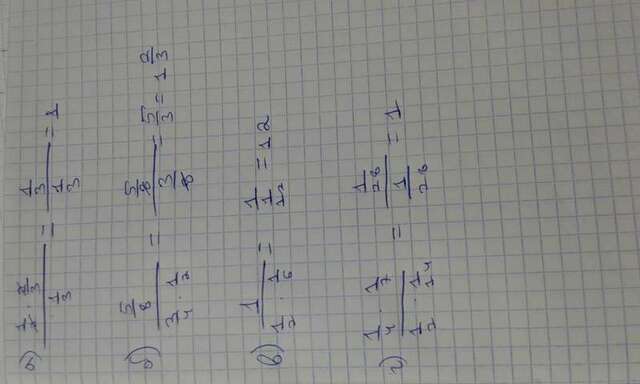 а) (1/2 · 2/3)/(1/3) = (1/3)/(1/3) = 1
б) (5/8)/(3/4 · 1/2) = (5/8)/(3/8) = 5/3 = 1 2/3
в) 1/(1/2 · 1/6) = 1/(1/12) = 12
г) (1/4 · 1/7)/(1/2 · 1/14) = (1/28)/(1/28) = 1